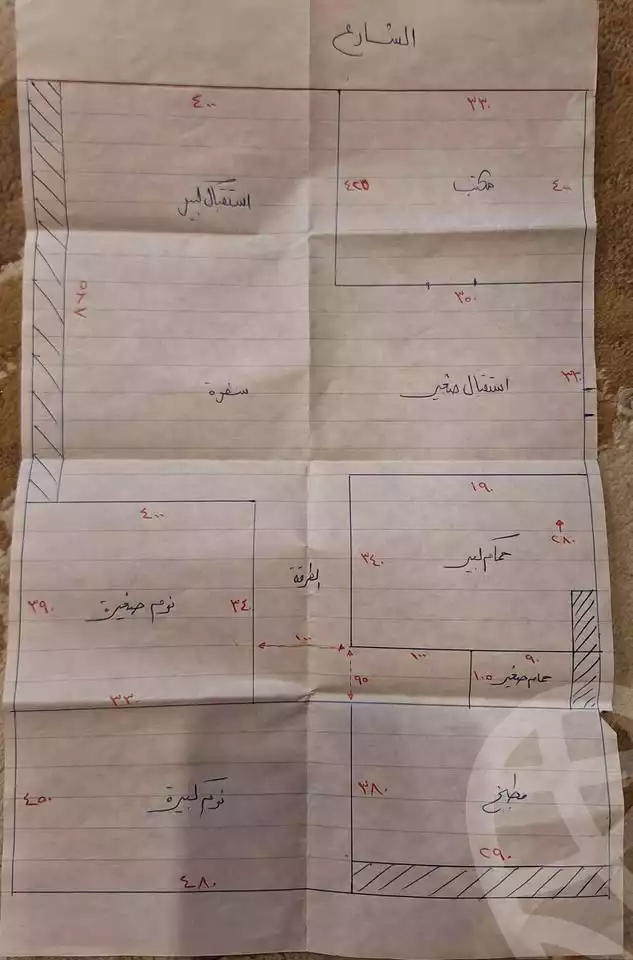 الشارع
٤٠٠
٣٣٠
استقبال كبير
٤٢٥
مكتب
٤٠٠
٨٧٥
٣٥٠
سفرة
استقبال صغير
٣٢٠
٤٠٠
١٩٠
٢٨٠
حمام كبير
٣٤٠
الطرقة
٣٩٠
نوم صغيرة
٣٤٠
١٠٠
١٠٠
٩٠
٩٥
١٠٥
حمام صغير
٣٣٠
٤٥٠
نوم كبيرة
٣٨٠
مطبخ
٢٩٠
٤٨٠